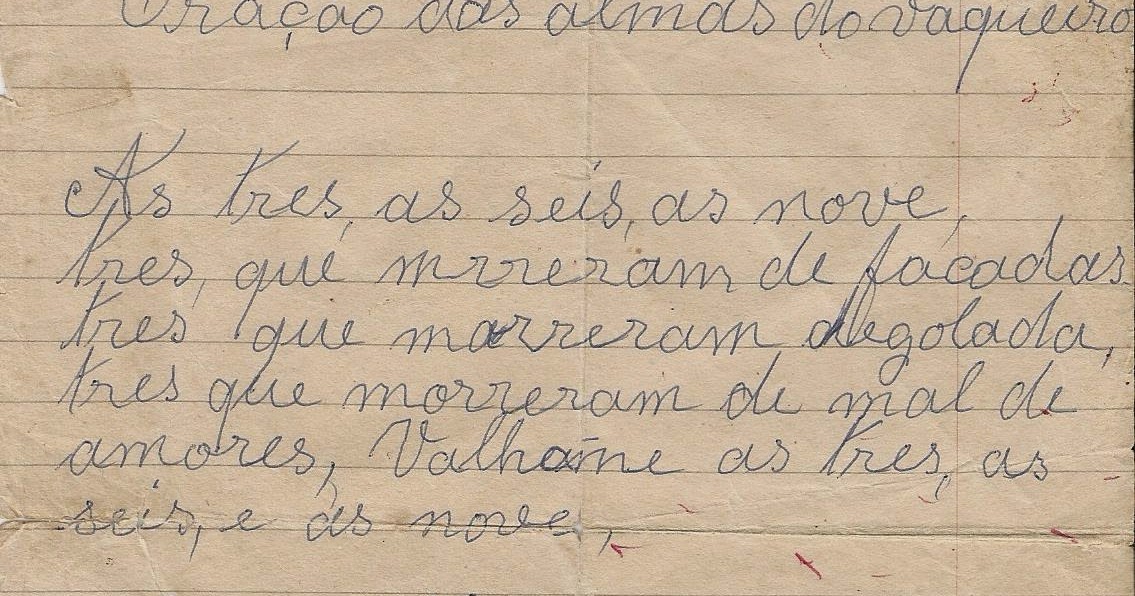 Oração das almas do vaqueiro
As tres, as seis, as nove,
tres, que mrreram de facadas.
tres que morreram degolada,
tres que morreram de mal de
amores, Valhame as tres, as
seis, e as nove,